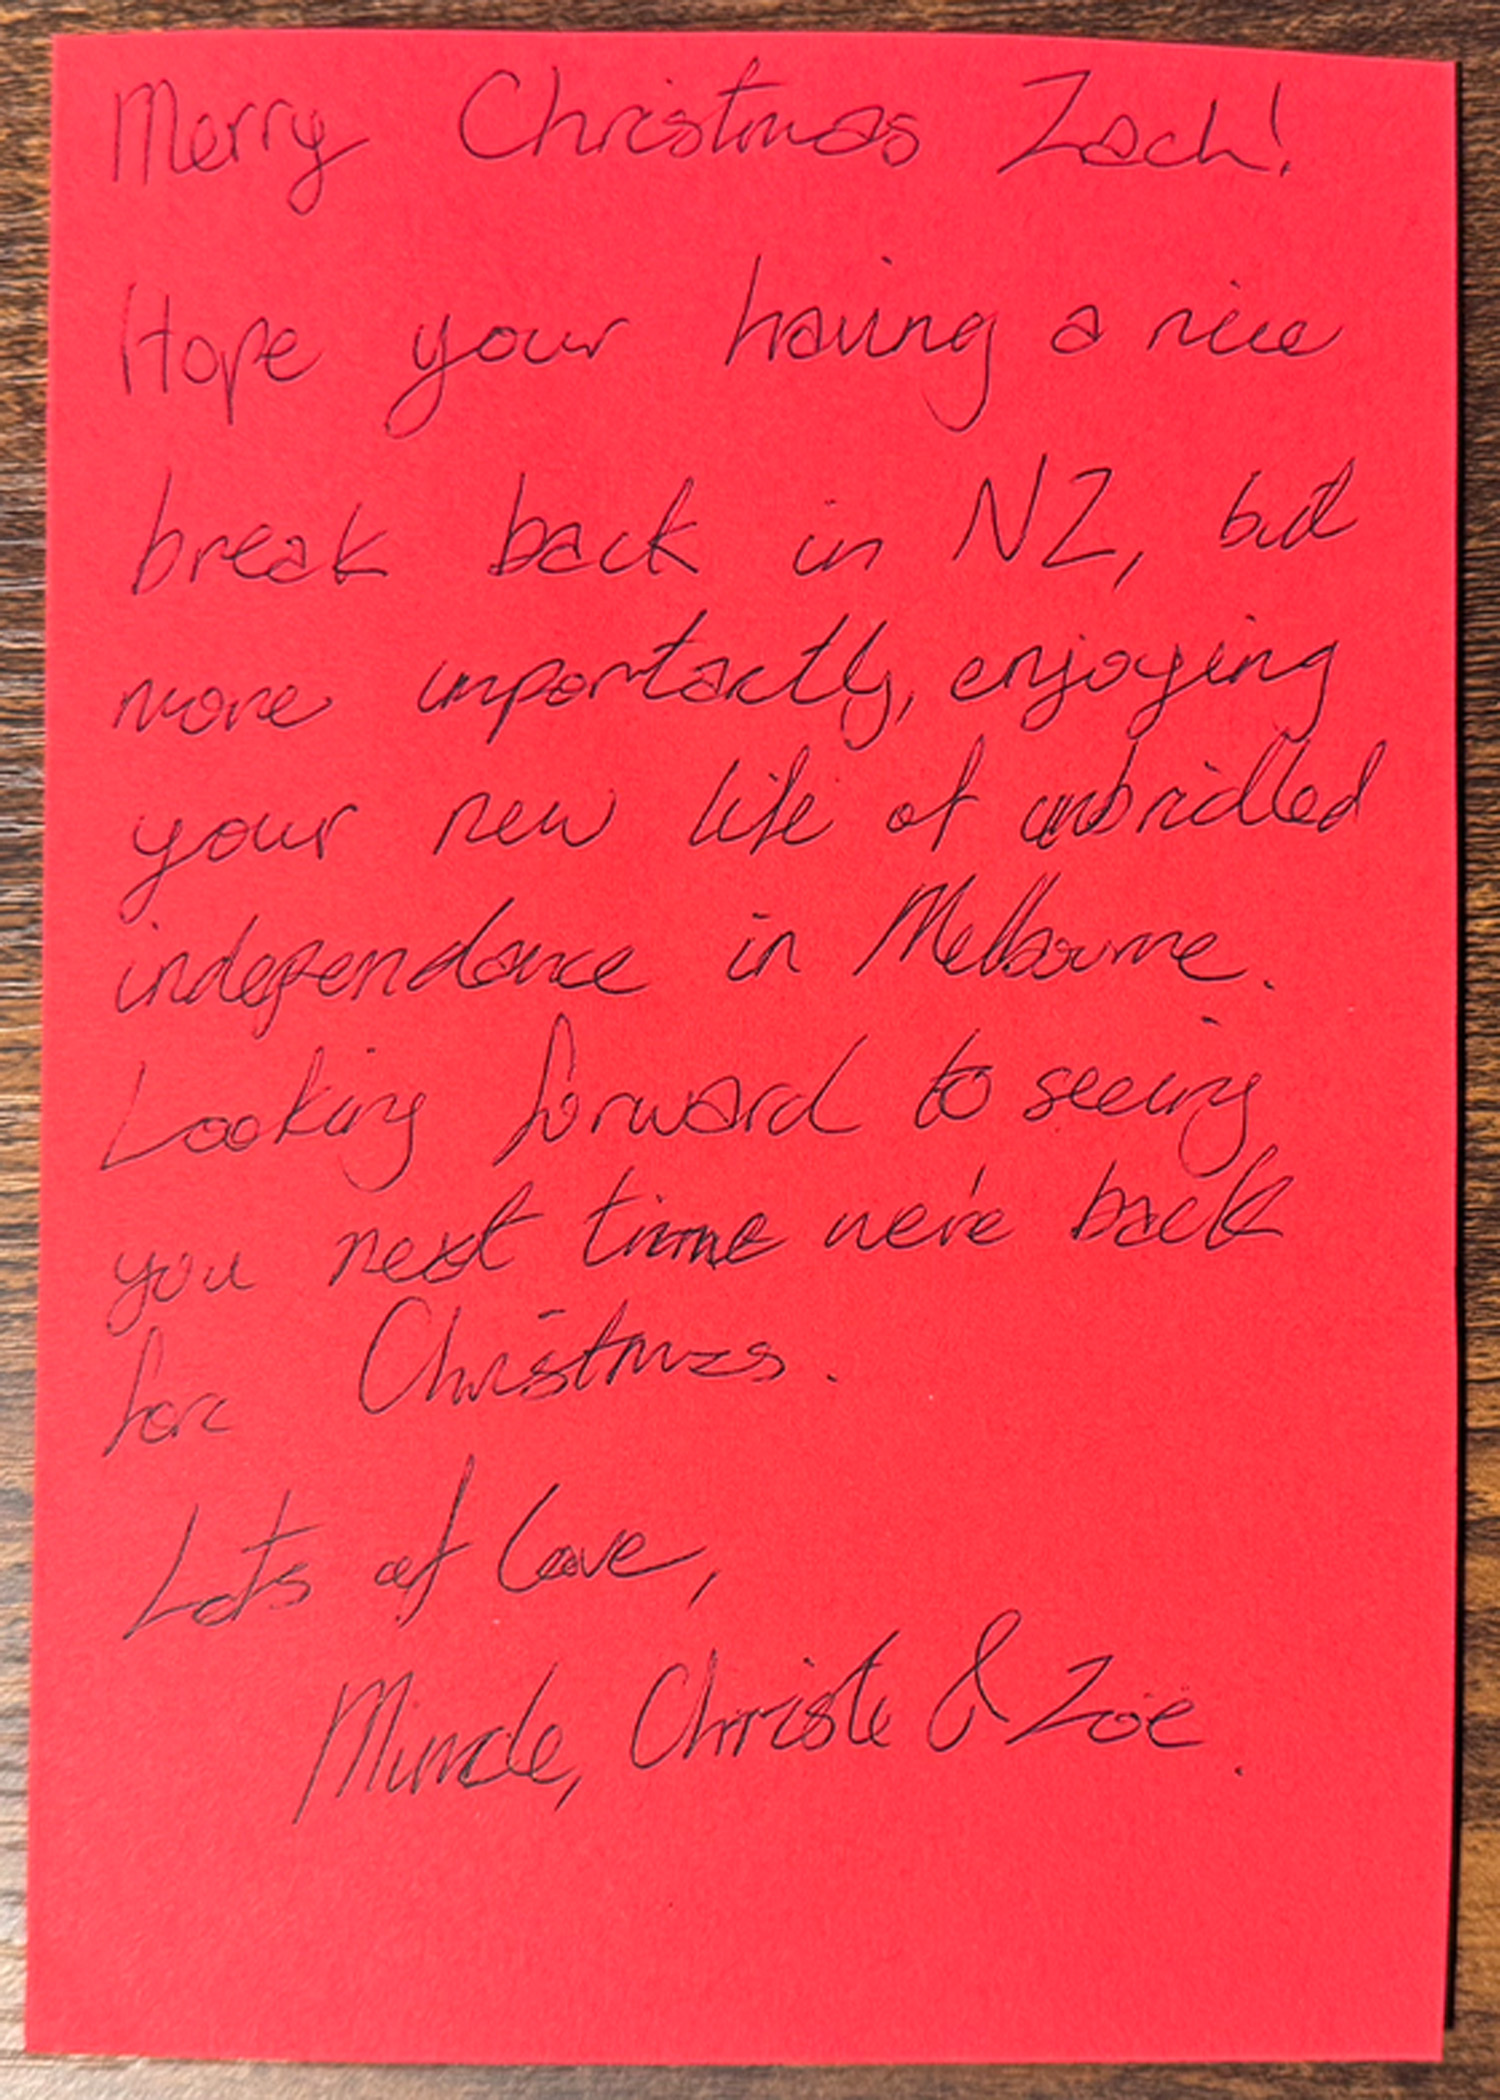 Merry Christmas Zach!
Hope your having a nice
break back in NZ, but
more importactly, enjoying
your new life of unbridled
independance in Melbourne.
Looking forward to seeing
you next time we're back
for Christmas.
Lots of love,
Christe & Zoë.